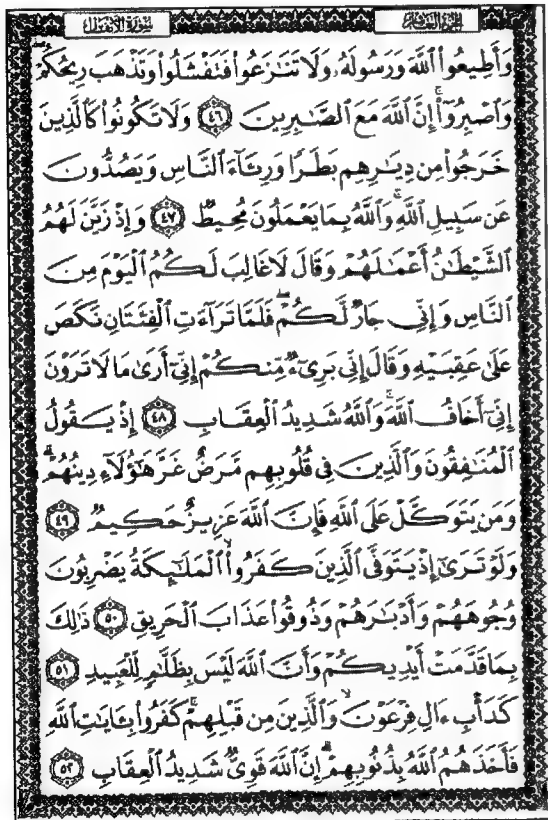 سورة الأنفال
الجزء العاشر
وَأَطِيعُوا۟ ٱللَّهَ وَرَسُولَهُۥ وَلَا تَنَٰزَعُوا۟ فَتَفْشَلُوا۟ وَتَذْهَبَ رِيحُكُمْ
وَٱصْبِرُوٓا۟ۚ إِنَّ ٱللَّهَ مَعَ ٱلصَّٰبِرِينَ ٤٦ وَلَا تَكُونُوا۟ كَٱلَّذِينَ
خَرَجُوا۟ مِن دِيَٰرِهِم بَطَرًا وَرِئَآءَ ٱلنَّاسِ وَيَصُدُّونَ
عَن سَبِيلِ ٱللَّهِۚ وَٱللَّهُ بِمَا يَعْمَلُونَ مُحِيطٌ ٤٧ وَإِذْ زَيَّنَ لَهُمُ
ٱلشَّيْطَٰنُ أَعْمَٰلَهُمْ وَقَالَ لَا غَالِبَ لَكُمُ ٱلْيَوْمَ مِنَ
ٱلنَّاسِ وَإِنِّى جَارٌ لَّكُمْۖ فَلَمَّا تَرَآءَتِ ٱلْفِئَتَانِ نَكَصَ
عَلَىٰ عَقِبَيْهِ وَقَالَ إِنِّى بَرِىٓءٌ مِّنكُمْ إِنِّىٓ أَرَىٰ مَا لَا تَرَوْنَ
إِنِّىٓ أَخَافُ ٱللَّهَۚ وَٱللَّهُ شَدِيدُ ٱلْعِقَابِ ٤٨ إِذْ يَقُولُ
ٱلْمُنَٰفِقُونَ وَٱلَّذِينَ فِى قُلُوبِهِم مَّرَضٌ غَرَّ هَٰٓؤُلَآءِ دِينُهُمْۗ
وَمَن يَتَوَكَّلْ عَلَى ٱللَّهِ فَإِنَّ ٱللَّهَ عَزِيزٌ حَكِيمٌ ٤٩
وَلَوْ تَرَىٰٓ إِذْ يَتَوَفَّى ٱلَّذِينَ كَفَرُوا۟ۙ ٱلْمَلَٰٓئِكَةُ يَضْرِبُونَ
وُجُوهَهُمْ وَأَدْبَٰرَهُمْ وَذُوقُوا۟ عَذَابَ ٱلْحَرِيقِ ٥٠ ذَٰلِكَ
بِمَا قَدَّمَتْ أَيْدِيكُمْ وَأَنَّ ٱللَّهَ لَيْسَ بِظَلَّٰمٍ لِّلْعَبِيدِ ٥١
كَدَأْبِ ءَالِ فِرْعَوْنَۙ وَٱلَّذِينَ مِن قَبْلِهِمْۚ كَفَرُوا۟ بِـَٔايَٰتِ ٱللَّهِ
فَأَخَذَهُمُ ٱللَّهُ بِذُنُوبِهِمْۗ إِنَّ ٱللَّهَ قَوِىٌّ شَدِيدُ ٱلْعِقَابِ ٥٢